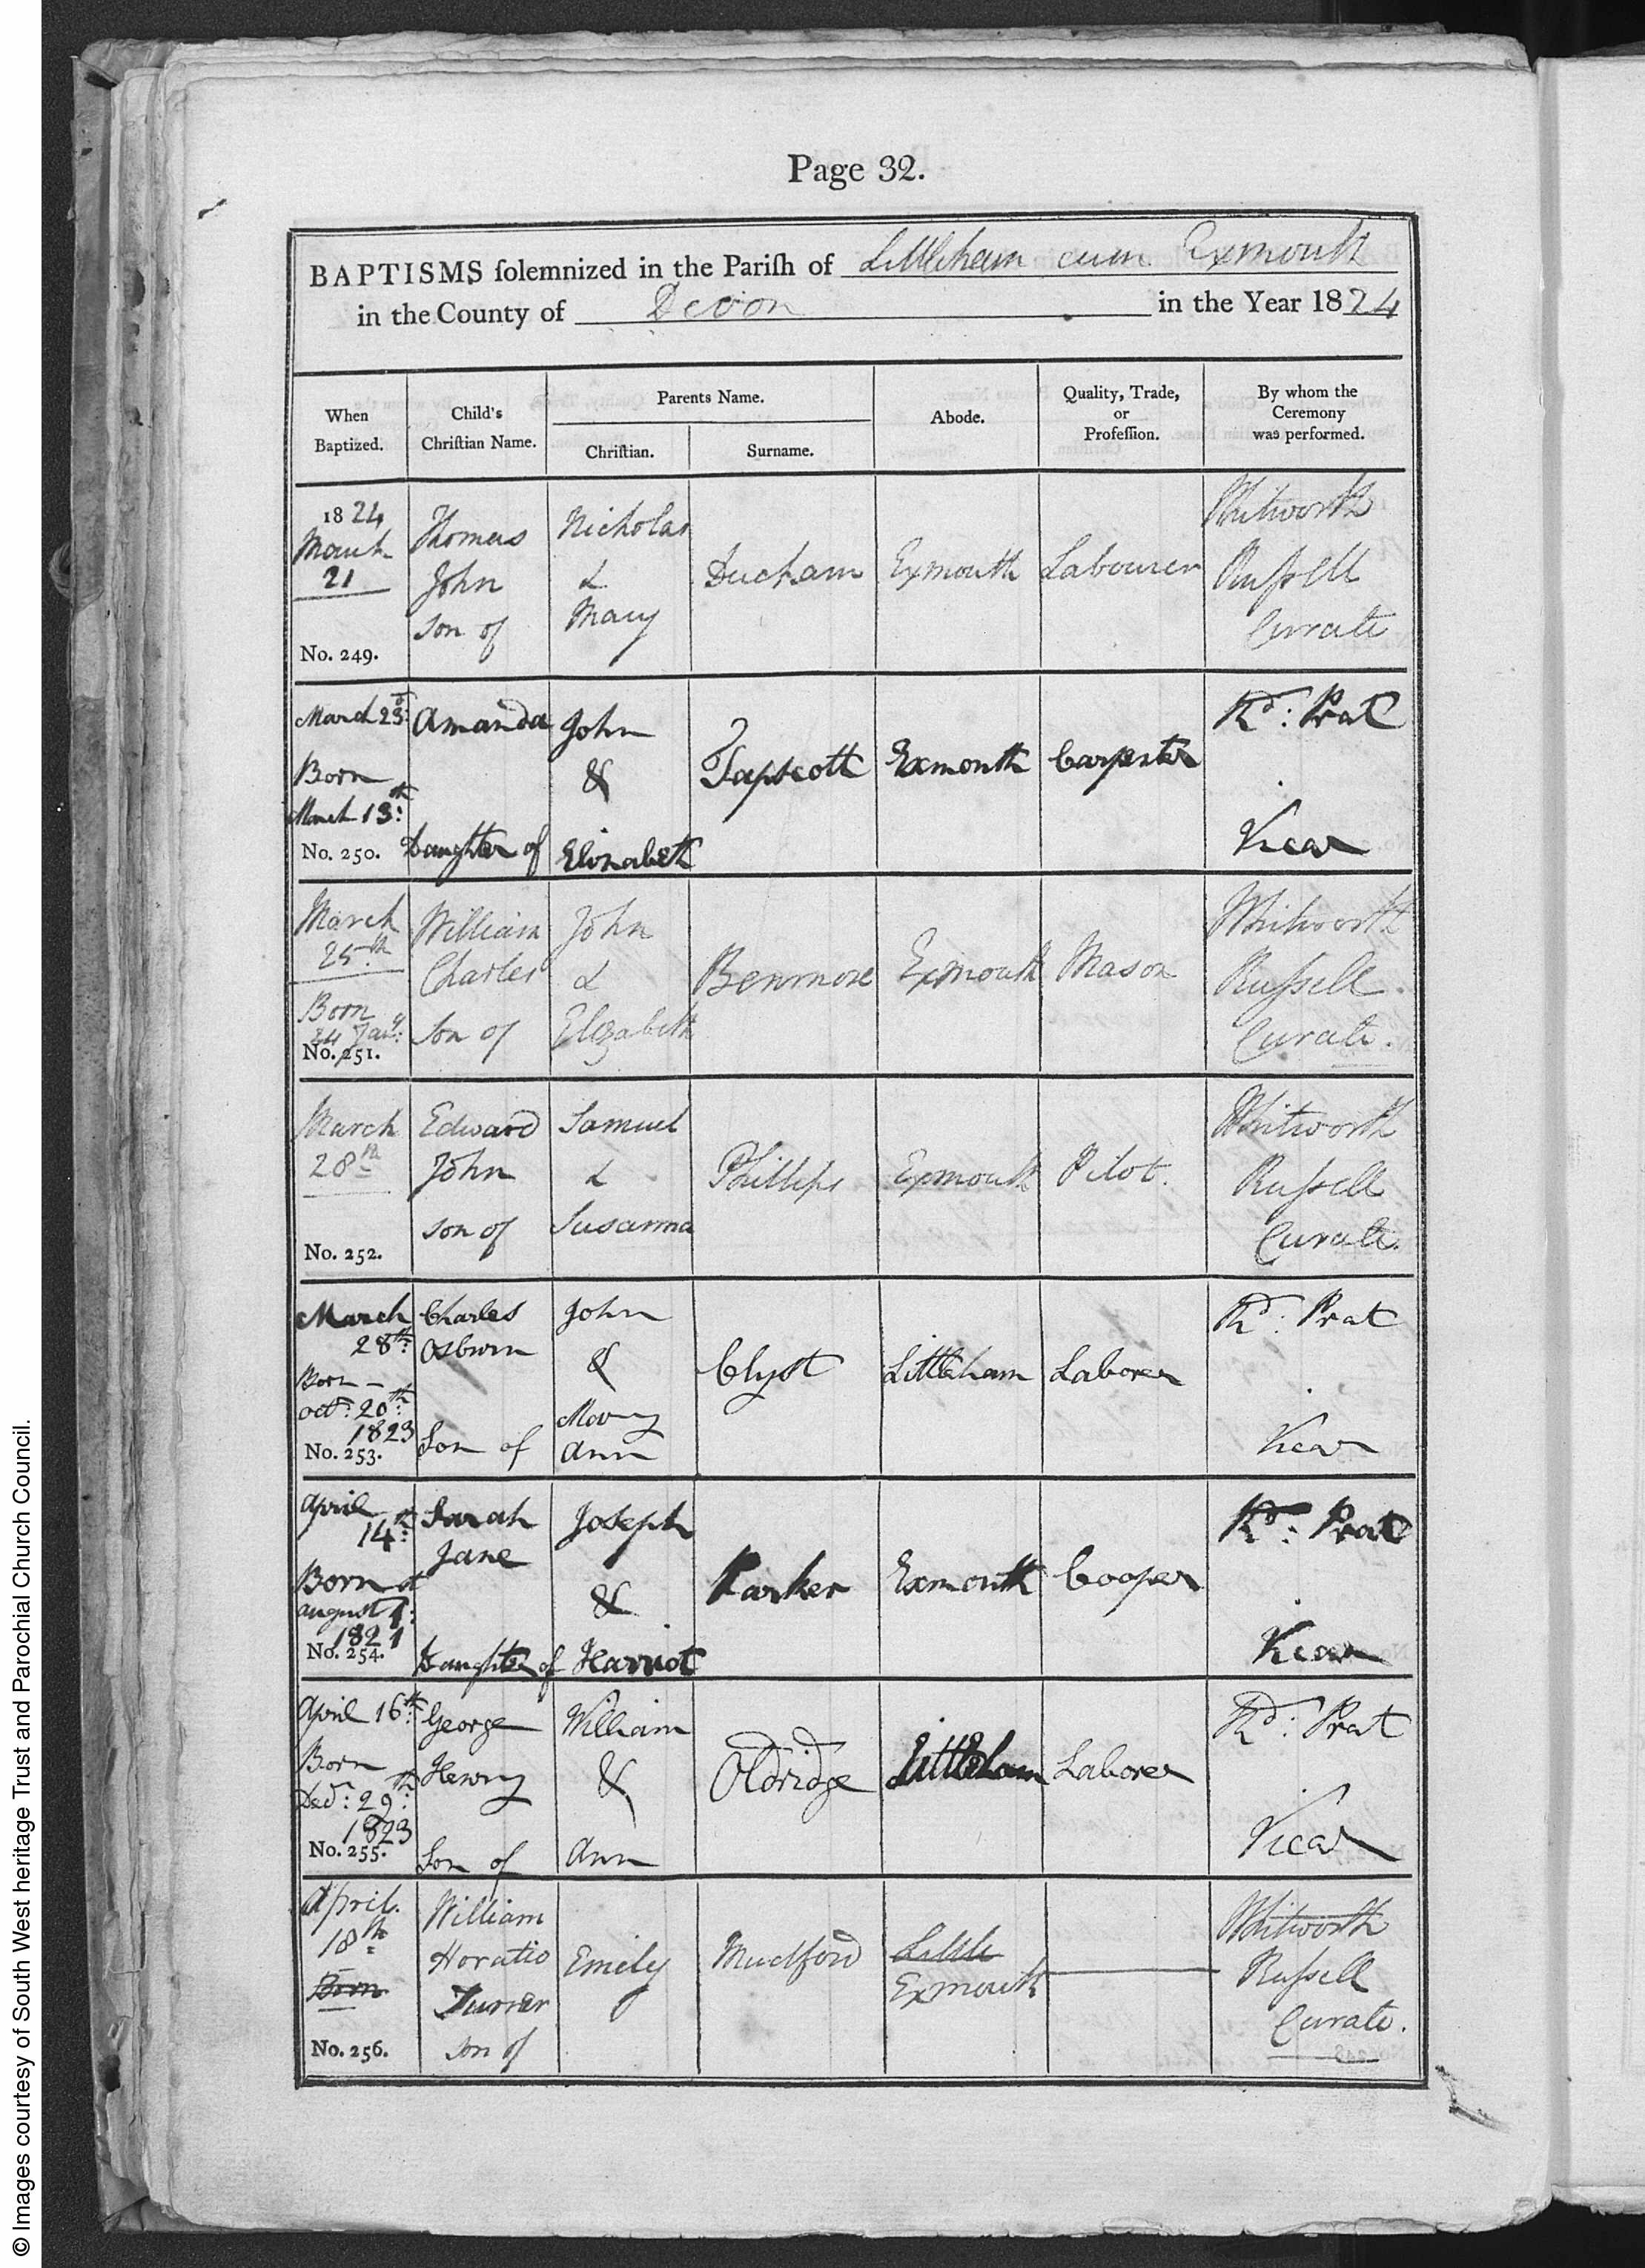 Page 32.
BAPTISMS solemnized in the Parish of Littleham cum Exmouth
in the County of Devon in the Year 1824
When Baptized.
Child's Christian Name.
Parents Name.
Christian.
Surname.
Abode.
Quality, Trade, or Profession.
By whom the Ceremony was performed.
1824
March
21
No. 249.
Thomas
John
son of
Nicholas
&
Mary
Exmouth
Labourer
Whitworth
Russell
Curate
March 25th
Born
March 13th:
No. 250.
Amanda
Daughter of
John
&
Elizabeth
Tapscott
Exmouth
Carpenter
Rd: Prat
Vicar
March
25th
Born
24 Jany:
No. 251.
William
Charles
Son of
John
&
Elizabeth
Benmore
Exmouth
Mason
Whitworth
Russell
Curate.
March
28th
No. 252.
Edward
John
son of
Samuel
&
Susanna
Phillips
Exmouth
Pilot.
Whitworth
Russell
Curate.
March
28th:
Born –
Octr: 20th:
1823
No. 253.
Charles
Osburn
Son of
John
&
Mary
Ann
Clyst
Littleham
Laborer
Rd: Prat
Vicar
April
14th:
Born
August 1st:
1821
No. 254.
Sarah
Jane
Daughter of
Joseph
&
Harriot
Parker
Exmouth
Cooper
Rd: Prat
Vicar
April 16th:
Born
Decr: 29th:
1823
No. 255.
George
Henry
Son of
William
&
Ann
Oldridge
Littleham
Laborer
Rd: Prat
Vicar
April.
18th
Born
No. 256.
William
Horatio
Turner
son of
Emily
Mudford
Little
Exmouth
Whitworth
Russell
Curate.
© Images courtesy of South West heritage Trust and Parochial Church Council.